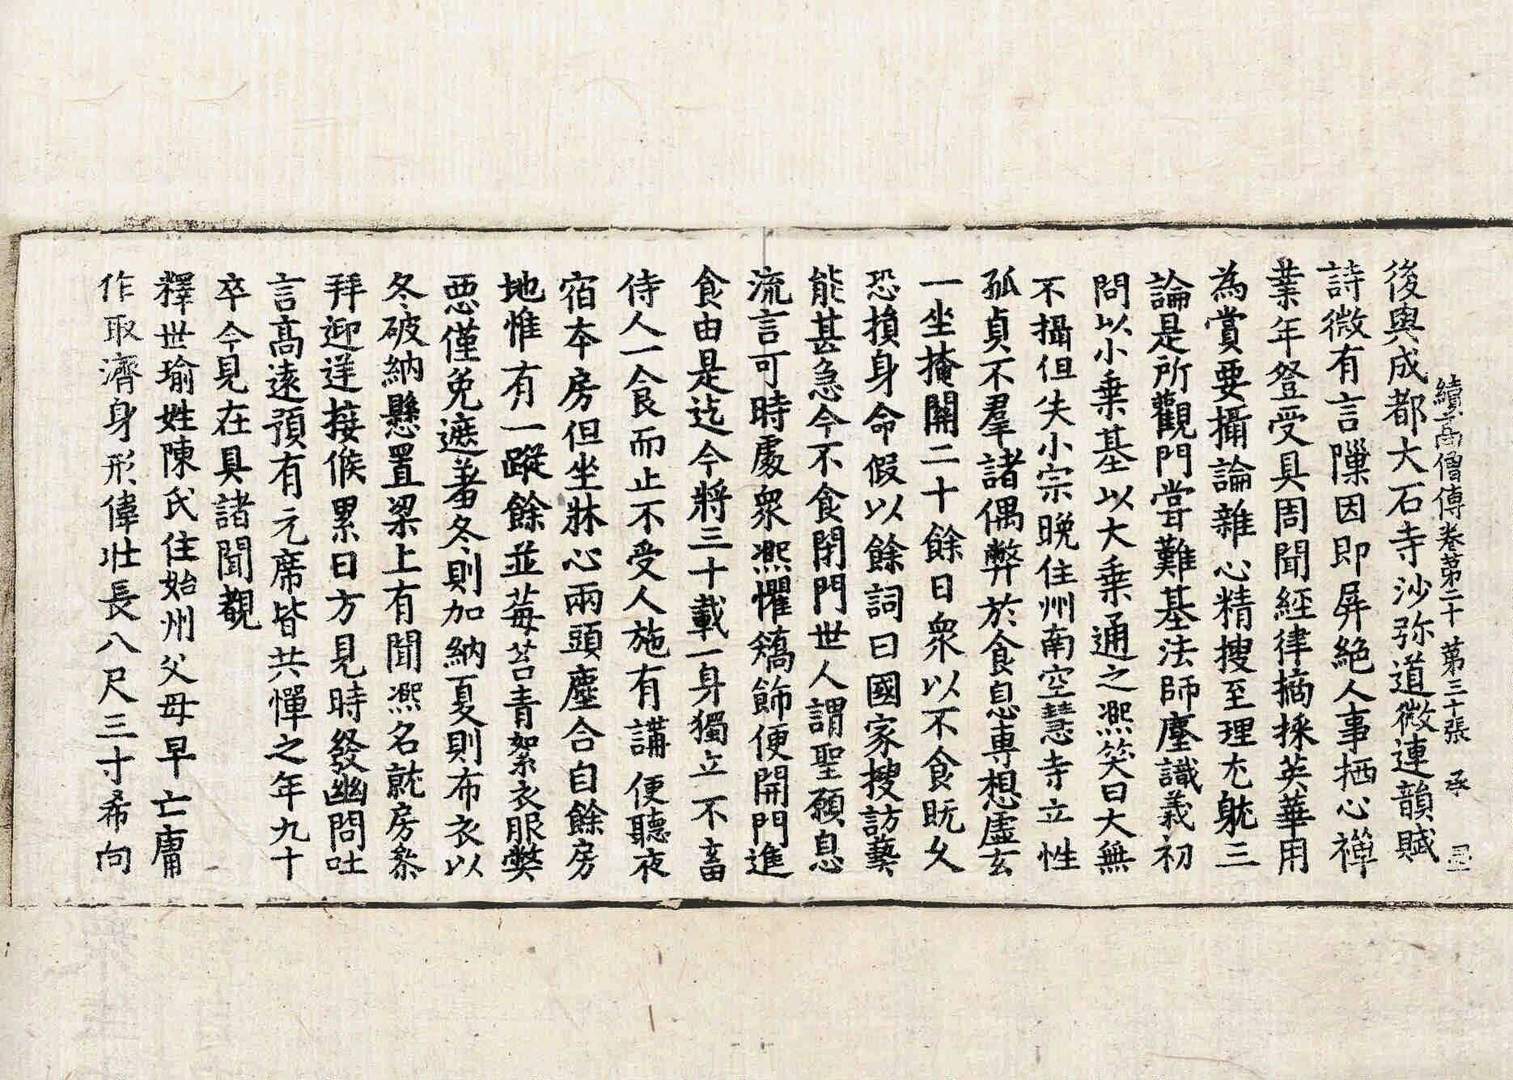 續高僧傳卷第二十 第三十張 承
後與成都大石寺沙弥道微連韻賦
詩微有言隟因即屏絕人事栖心禪
業年登受具周聞經律摘採英華用
為賞要攝論雜心精搜至理尤躭三
論是所觀門嘗難基法師塵識義初
問以小乗基以大乗通之凞笑曰大無
不攝但失小宗晚住州南空慧寺立性
孤貞不羣諸偶弊於食息專想虛玄
一坐掩關二十餘日衆以不食既久
恐損身命假以餘詞曰國家搜訪藝
能甚急今不食閉門世人謂聖願息
流言可時處衆凞懼矯飾便開門進
食由是迄今將三十載一身獨立不畜
侍人一食而止不受人施有講便聽夜
宿本房但坐牀心兩頭塵合自餘房
地惟有一蹤餘並莓苔青絮衣服弊
惡僅免遮著冬則加納夏則布衣以
冬破納懸置梁上有聞凞名就房叅
拜迎送接候累日方見時發幽問吐
言高遠預有元席皆共憚之年九十
卒今見在具諸聞覩
釋世瑜姓陳氏住始州父母早亡庸
作取濟身形偉壯長八尺三寸希向